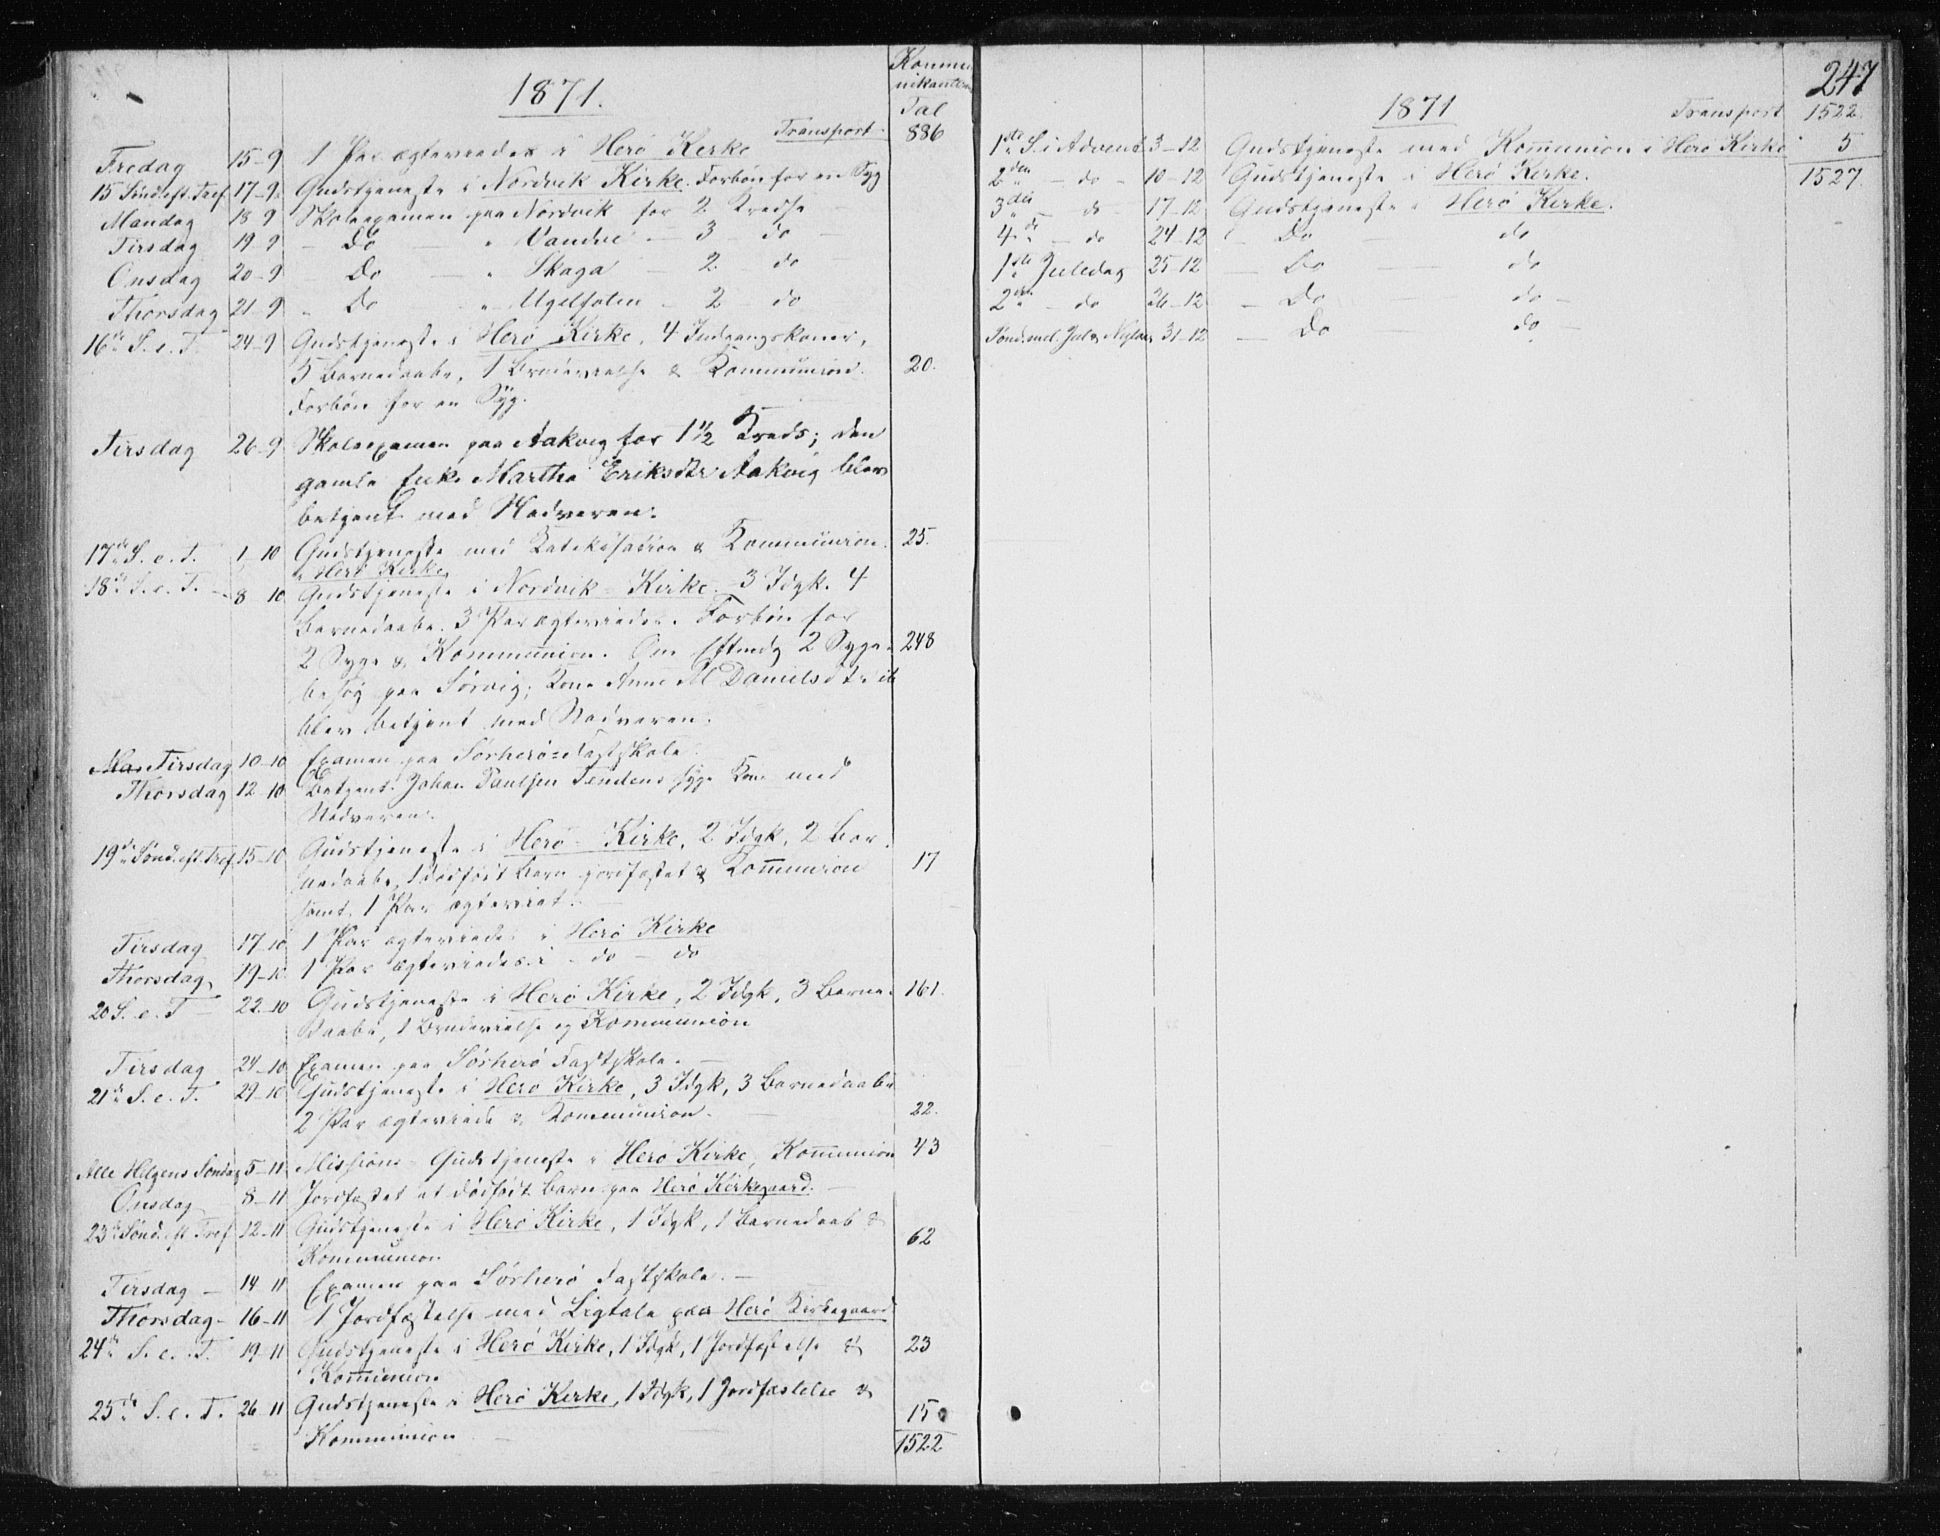 1871.
Kommu-
nikanternes
Tal
Transport 886
Fredag 15-9 1 Par ægteviedes i Herø Kirke
15 Sønd. eft. Tref. 17-9 Gudstjeneste i Nordvik Kirke. Forbøn for en Syg
Mandag 18-9 Skoleexamen paa Nordvik for 2 Kredse
Tirsdag 19-9 - Do - " Vandve - 3 - do -
Onsdag 20-9 Do - " Skaga - 2. do
Thorsdag 21-9 " Do " Ugelsølen - 2 - do
16de S. e. T. 24-9 Gudstjeneste i Herø Kirke, 4 Indgangskoner,
5 Barnedaabe, 1 Brudevielse & Kommunion. 20.
Forbøn for en Syg.
Tirsdag 26-9 Skoleexamen paa Aakvig for 1 1/2 Kreds; den
gamle Enke Martha Eriksdtr Aakvig blev
betjent med Nadveren.
17de S. e. T. 1-10 Gudstjeneste med Katekisation & Kommunion. 25.
i Herø Kirke
18de S. e. T. - 8-10 Gudstjeneste i Nordvik-Kirke. 3 Idgk. 4
Barnedaabe. 3 Par ægteviedes. Forbøn for
2 Syge & Kommunion. Om Eftmdg 2 Syge- 248
besøg paa Sørvig; Kone Anne M Danielsdtr ib
blev betjent med Nadveren.
Man Tirsdag 10-10 Examen paa Sørherø-Fastskole
Thorsdag 12-10 Betjent Johan Paulsen Tendens syge Kone med
Nadveren.
19de Sønd. eft. Tref 15-10 Gudstjeneste i Herø-Kirke, 2 Idgk, 2 Bar-
nedaabe, 1 dødfødt Barn jordfæstet & Kommunion 17
samt, 1 Par ægteviet.
Tirsdag 17-10 1 Par ægteviedes i Herø Kirke
Thorsdag 19-10 1 Par ægteviedes i - do - do
20 S. e. T - 22-10 Gudstjeneste i Herø Kirke, 2 Idgk, 3 Barne- 161.
daabe, 1 Brudevielse og Kommunion
Tirsdag 24-10 Examen paa Sørherø Fastskole. -
21de S. e. T. 29-10 Gudstjeneste i Herø Kirke, 3 Idgk, 3 Barnedaabe
2 Par ægteviede & Kommunion. 22.
Alle Helgens Søndag 5-11 Missions-Gudstjeneste i Herø Kirke, Kommunion 43
Onsdag 8-11 Jordfæstet et dødfødt Barn paa Herø Kirkegaard.
23de Sønd. eft Tref 12-11 Gudstjeneste i Herø Kirke, 1 Idgk, 1 Barnedaab &
Kommunion 62
Tirsdag - 14-11 Examen paa Sørherø Fastskole. -
Thorsdag - 16-11 1 Jordfæstelse med Ligtale paa Herø Kirkegaard
24de S. e. T. 19-11 Gudstjeneste i Herø Kirke, 1 Idgk, 1 Jordfæstelse & 23
Kommunion
25de S. e. T. 26-11 Gudstjeneste i Herø Kirke, 1 Idgk, 1 Jordfæstelse &
Kommunion 15
1522
247
1871 Transport 1522.
1ste S. i Advent 3-12 Gudstjeneste med Kommunion i Herø Kirke 5
2den - do - 10-12 Gudstjeneste i Herø Kirke. 1527.
3die - do - 17-12 Gudstjeneste i Herø Kirke.
4de - do 24-12 - Do - do
1ste Juledag 25-12 - Do - do
2den - do 26-12 - Do - do -
Sønd. mel. Jul & Nytaar 31-12 - Do - do -